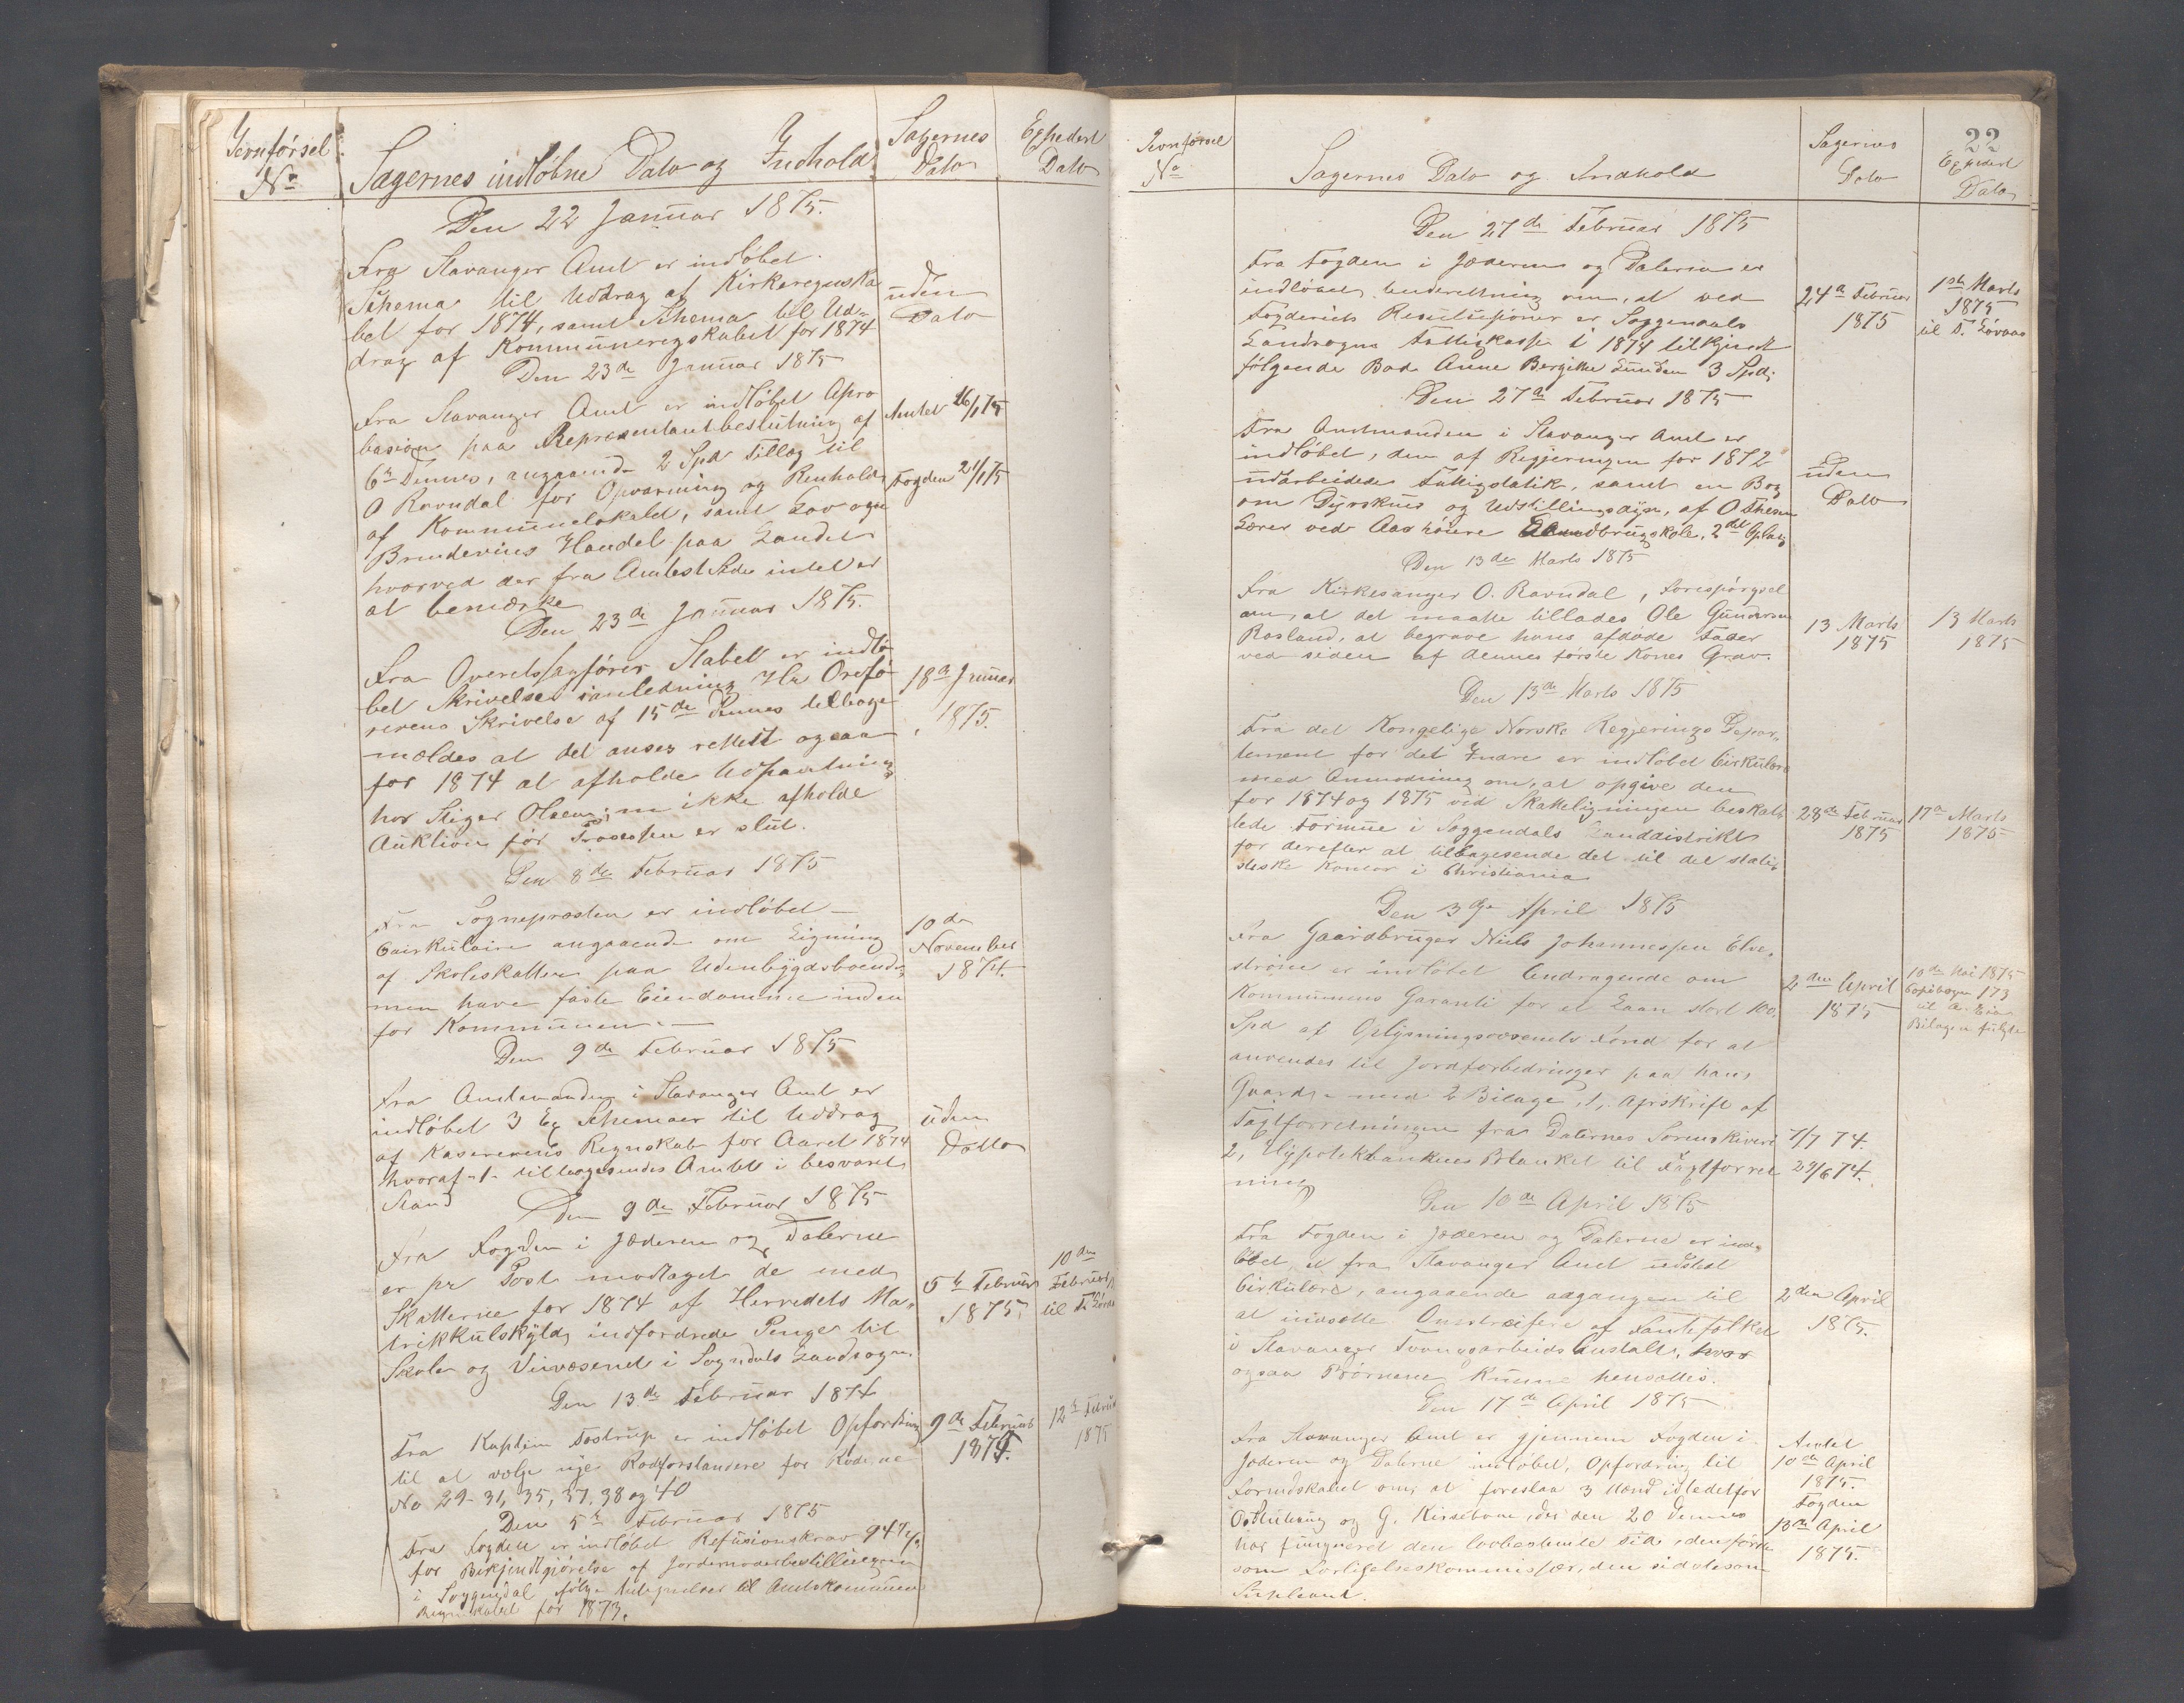 Jevnførsel
No
Sagernes indløbne Dato og Indhold
Sagernes
Dato
Expedert
Dato
Den 22 Januar 1875.
Fra Stavanger Amt er indløbet
Schema til Uddrag af Kirkeregnska
bet for 1874, samt Schema til Ud-
drag af Kommuneregnskabet for 1874
uden
Dato
Den 23de Januar 1875
Fra Stavanger Amt er indløbet Apro
basion paa Representantbeslutning af
6te Dennes, angaaende 2 Spd Tillæg til
O Ravndal for Opvarming og Renhold
af Kommunelokalet, samt Lov om
Brændevins Handel paa Landet
hvorved der fra Amtets Side intet er
at bemærke
Amtet 16/1 75
Fogden 21/1 75
Den 23de Januar 1875.
Fra Overetssagfører Stabel er indlø
bet Skrivelse i anledning Hr Ordfø
rerens Skrivelse af 15de Dennes tilbage
meldes at det anses rettest ogsaa
for 1874 at afholde Udpantning
hos Stiger Olsen; m ikke afholde
Auktion før Prosessen er slut.
18de Januar
1875.
Den 8de Februar 1875
Fra Sognepresten er indløbet
Cairkulaire angaaende om Ligning
af Skoleskatten paa Udenbygdsboende
men have faste Eiendomme inden
for Kommunen.
10de
November
1874.
Den 9de Februar 1875
Fra Amtmanden i Stavanger Amt er
indløbet 3 Ex Schemaer til Uddrag
af Kasererens Regnskab for Aaret 1874
hvoraf -1- tilbagesendes Amtet i besvaret
Stand
uden
Datto
Den 9de Februar 1875
Fra Fogden i Jæderen og Dalerne
er pr Post modtaget de med
Skatterne for 1874 af Herredets Ma-
trikkulskyld indfordrede Penge til
Skole og Veivæsenet i Sogndals Landsogn
5te Februar
1875.
10de
Februar
til T.
Den 13de Februar 1874
Fra Kaptein Tostrup er indløbet Opfordring
til at vælge nye Rodforstandere for Roderne
No 29-31, 35, 37, 38 og 40
9de Februar
1875.
12te Februar
1875
Den 5te Februar 1875
Fra Fogden er indløbet Refusionskrav
for Bekjendtgjørelse af Jordemoderbestillingen
i Soggendal ifølge Antegnelser til Amtskommune
Regnskabet for 1873.
22
Jevnførsel
No
Sagernes Dato og Indhold
Sagernes
Dato
Expedert
Dato
Den 27de Februar 1875
Fra Fogden i Jæderen og Dalerne er
indløbet Underretning om, at ved
Fogderiets Resolusjoner er Soggendals
Landsogns Fattigkasse i 1874 tilkjendt
følgende Bod Anne Bergitte Lunden 3 Spd.
24de Februar
1875
1ste Marts
1875
til T. Løvaas
Den 27de Februar 1875
Fra Amtmanden i Stavanger Amt er
indløbet, den af Regjeringen for 1872
udarbeidede Fattigstatik, samt en Bog
om Dyrskuer og Udstillingsdyr, af O Thesen
Lærer ved Aas høiere Landbrugsskole, 2det Oplag
uden
Dato
Den 13de Marts 1875
Fra Kirkesanger O. Ravndal, Forespørgsel
om, at det maatte tillades Ole Gundersen
Rosland, at begrave hans afdøde Fader
ved siden af dennes første Kones Grav.
13 Marts
1875
13 Marts
1875
Den 13de Marts 1875
Fra det Kongelige Norske Regjerings Depar-
tement for det Indre er indløbet Cirkulære
med Anmodning om, at opgive den
for 1874 og 1875 ved Skateligningen beskat-
tede Formue i Soggendals Landdistrikt
for derefter at tilbagesende det til det stati-
stiske Kontor i Christiania
28de Februar
1875
17de Marts
1875
Den 3die April 1875
Fra Gaardbruger Niels Johannessen Elve-
strøm er indløbet Andragende om
Kommunens Garanti for et Laan stort 100
Spd af Oplysningsvæsenets Fond for at
anvendes til Jordforbedringer paa hans
Gaard, med 2 Bilage, 1, Afskrift af
Taxtforretningen fra Dalernes Sorenskriveri
2, Hypotekbankens Blanket til Taxtforret
ning
2den April
1875
10de Mai 1875
Copibogen 173
til A. Eia
Bilagen fulgte
7/7 74.
29/6 74.
Den 10de April 1875
Fra Fogden i Jæderen og Dalerne er ind-
løbet, et fra Stavanger Amt udstæt
Cirkulære, angaaende adgangen til
at indsætte Omstreifere af Fantefolket
i Stavanger Tvangsarbeids Anstalt, hvor
ogsaa Børnene kunne hensættes.
2den April
1875.
Den 17de April 1875
Fra Stavanger Amt er gjennem Fogden i
Jæderen og Dalerne indløbet, Opfordring til
Formdskabet om, at foreslaa 3 Mænd istedetfor
og G. Kirsebom, der den 20 Dennes
har fungeret den lovbestemte Tid, den første
som Forligelseskommissær, den sidste som
Supleant.
Amtet
10de April
1875.
Fogden
13de April
1875.